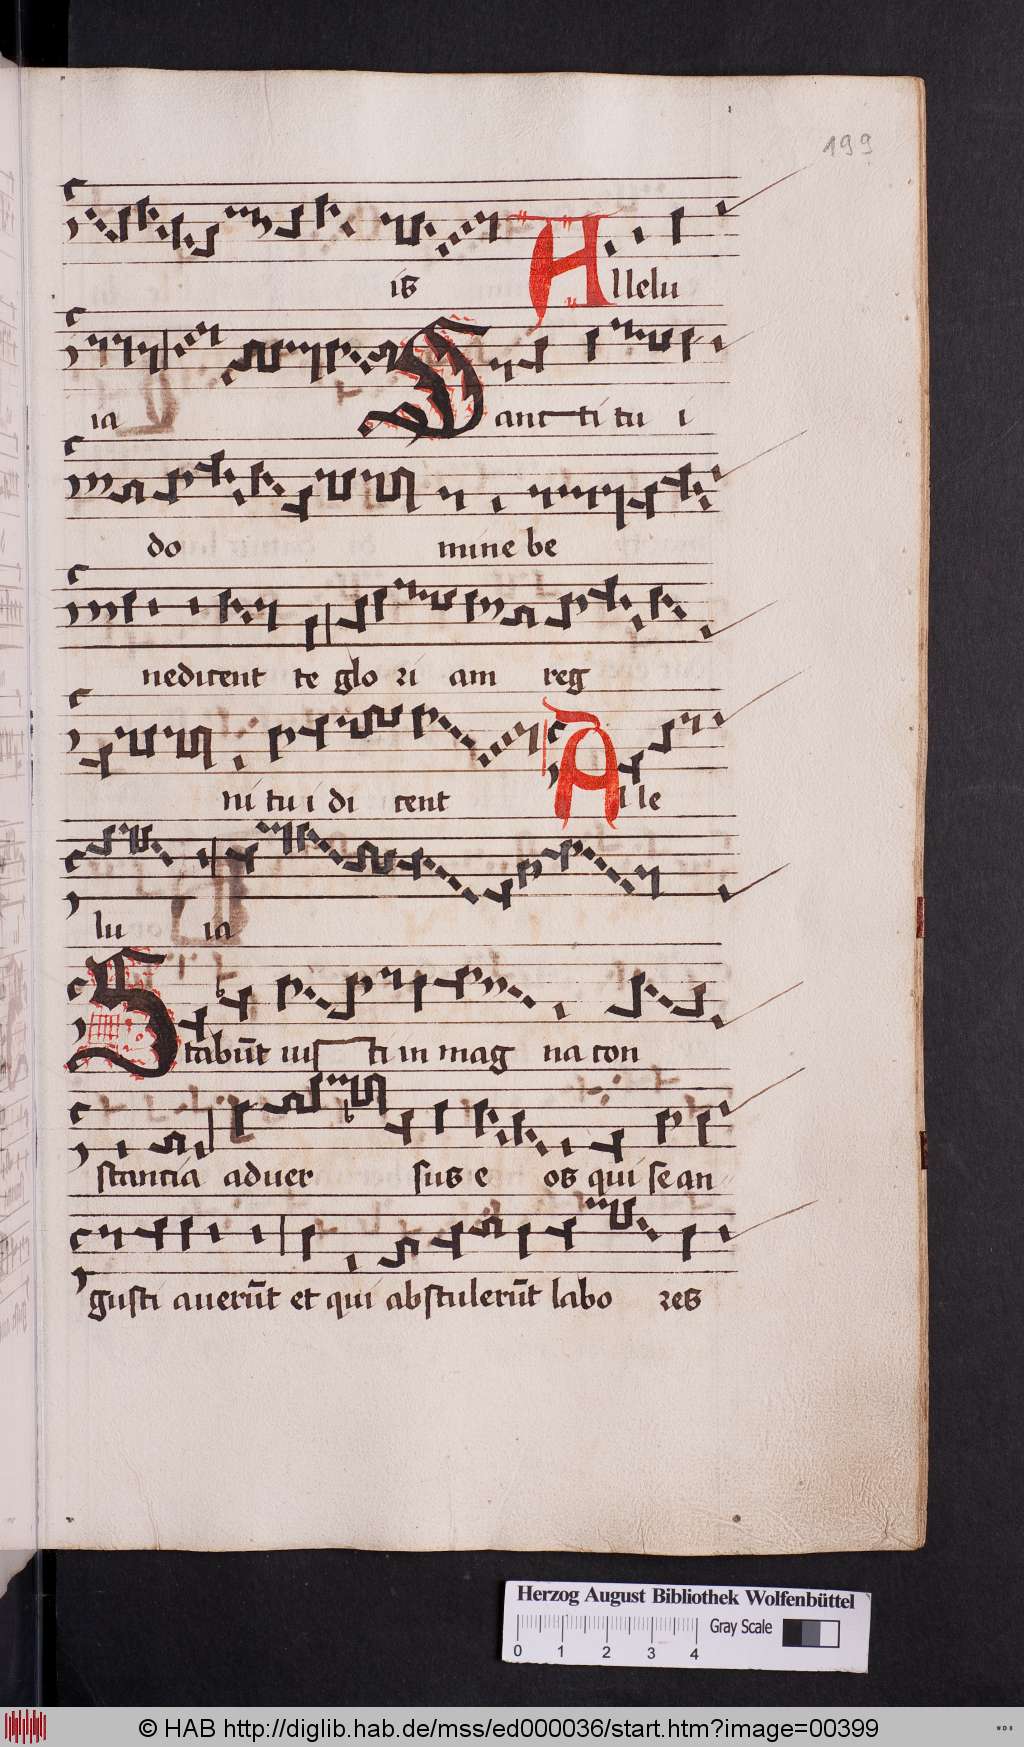 199
is Allelu
ia Sancti tui i
do mine be
nedicent te glo ri am reg
ni tu i di cent Alle
lu ia
Stabūt iusti in mag na con
stancia aduer sus e os qui se an
gusti auerūt et qui abstulerūt labo res
Herzog August Bibliothek Wolfenbüttel
0 1 2 3 4 Gray Scale
© HAB http://diglib.hab.de/mss/ed000036/start.htm?image=00399